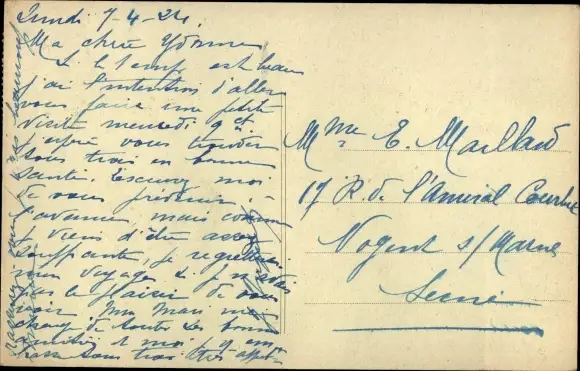 Lundi 7-4-24.
Ma chère Yvonne
Si le temps est beau
j'ai l'intention d'aller
vous faire une petite
visite mercredi 9 ct.
J'espère vous trouver
tous trois en bonne
santé. Excusez moi
de vous prévenir
d'avance, mais comme
je viens d'être assez
souffrante, je regretterais
mon voyage si je n'avais
pas le plaisir de vous
voir. Mon Mari me
charge de toutes ses bonnes
amitiés et moi j'y em
brasse tous trois très affectt
Mme E. Maillard
17 R. de l'Amiral Courbet
Nogent s/Marne
Seine